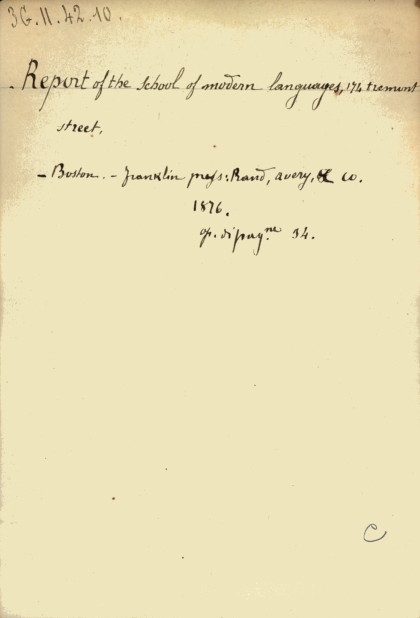 3G.II.42.10.
Report of the school of modern languages, 174 tremont
street,
– Boston. – franklin press: Rand, avery, & co.
1876.
op. di pag.ne 34.
C